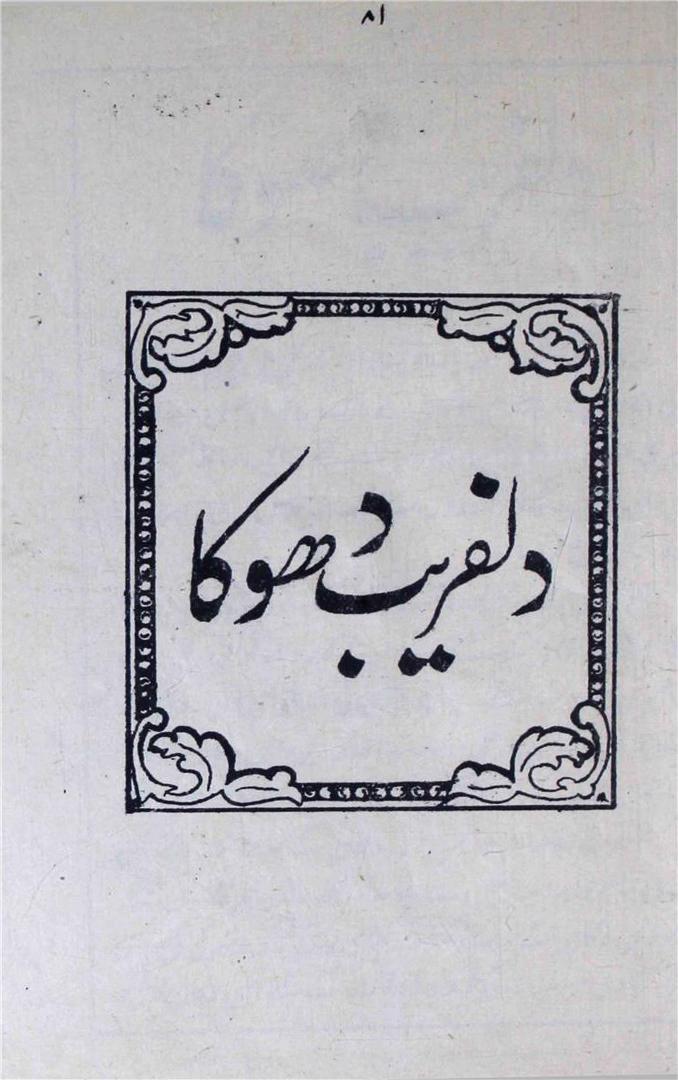 ۸۱
دلفریب دھوکا